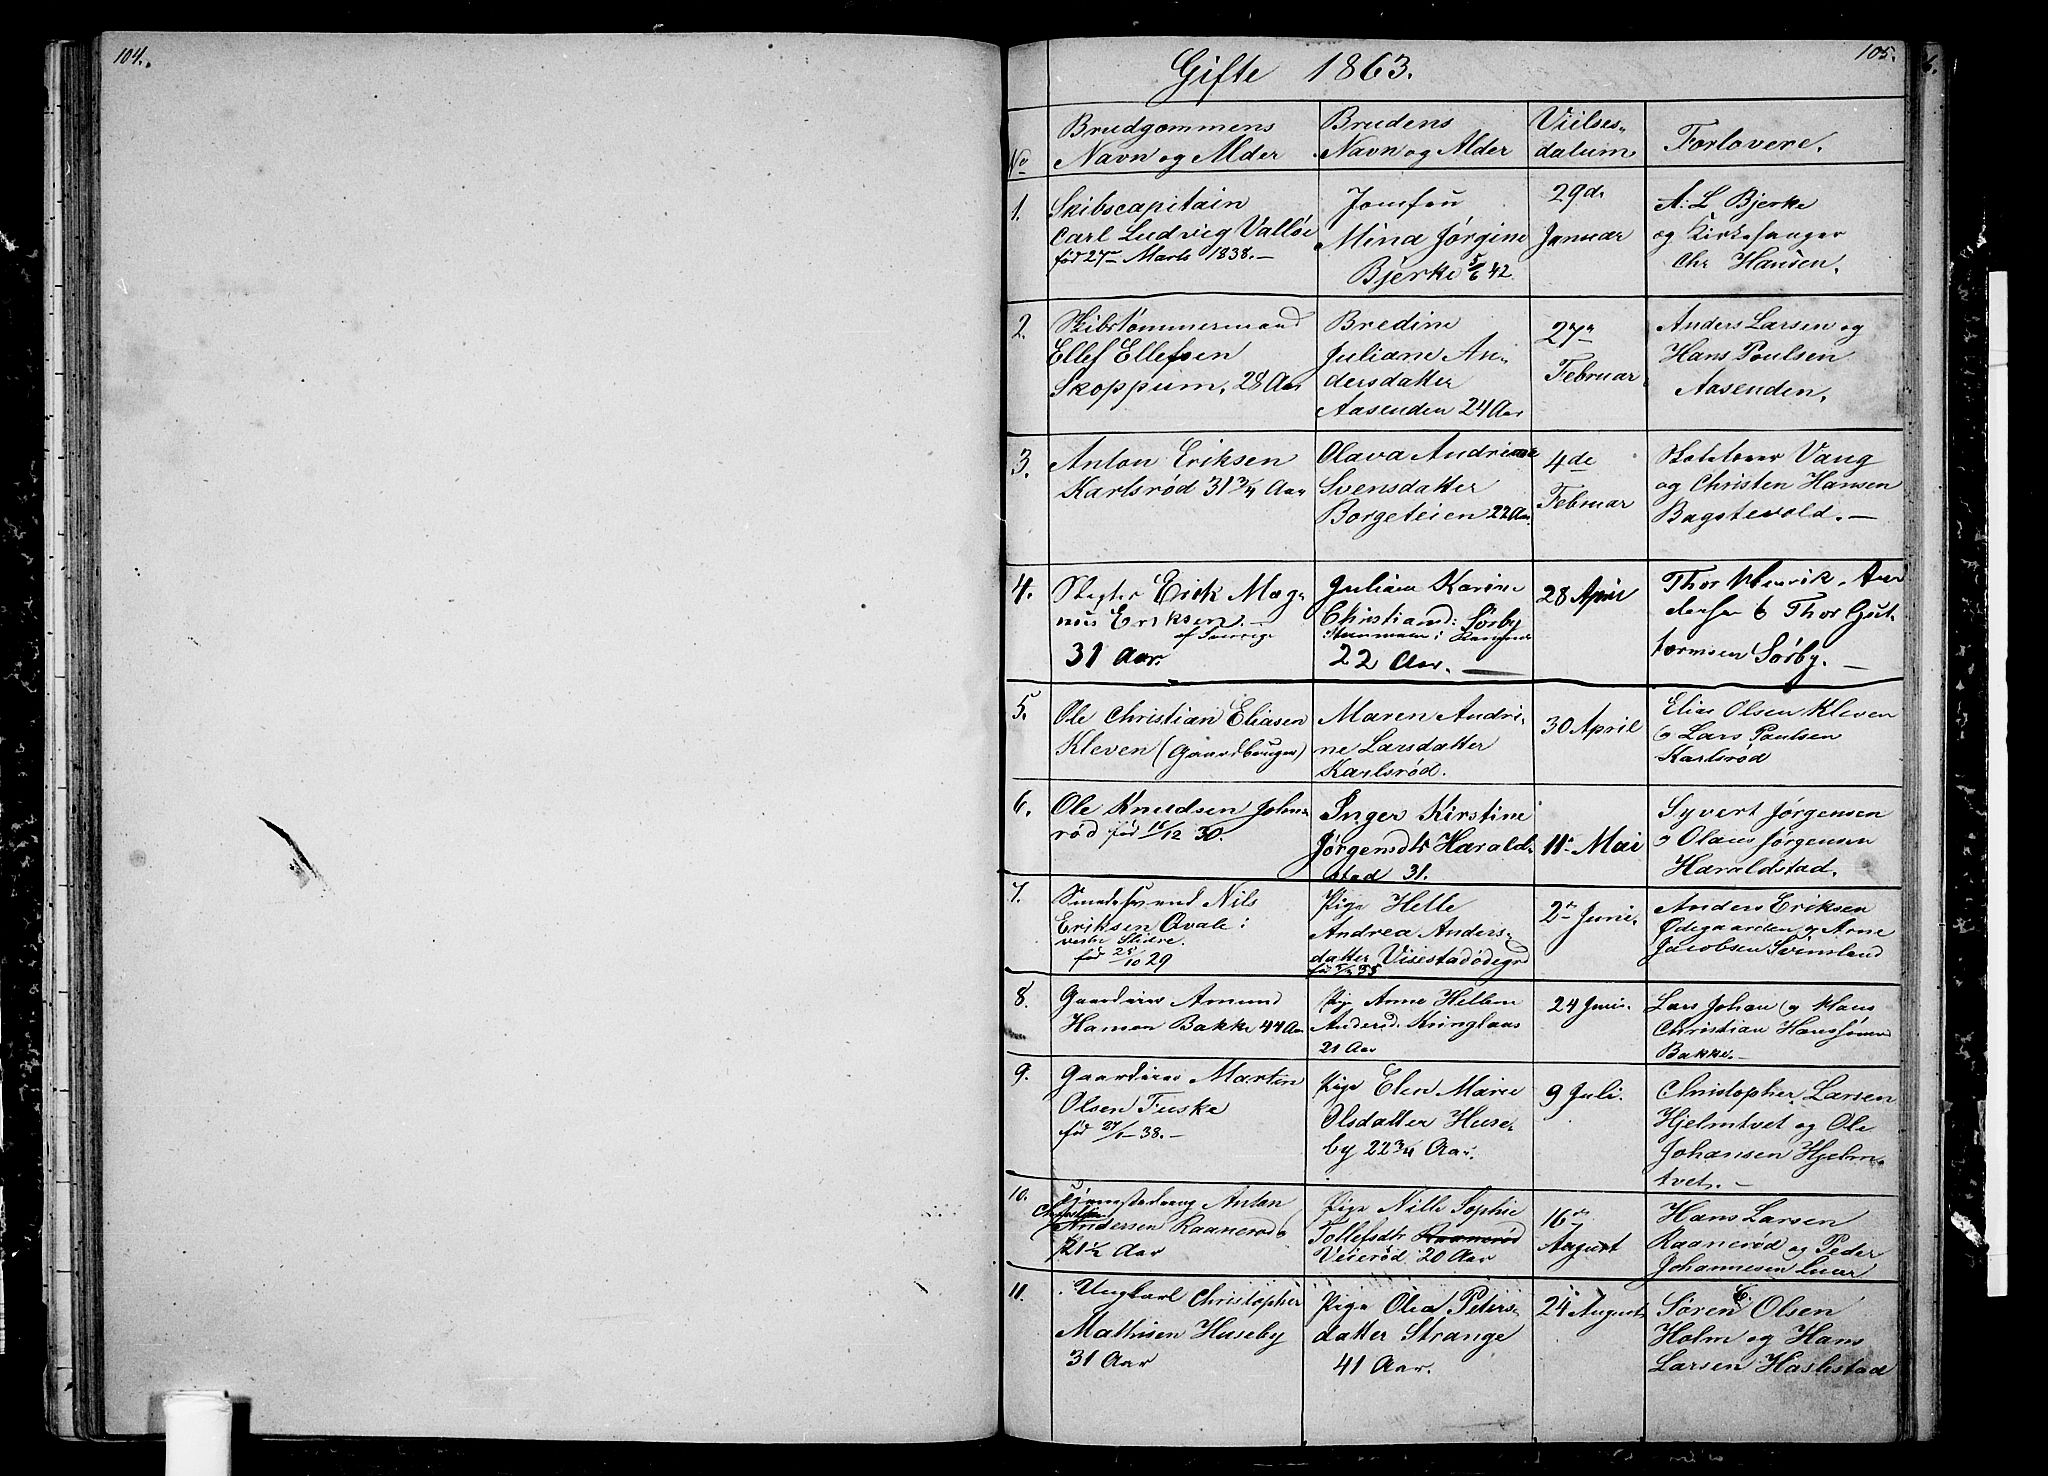 104.
105.
Gifte 1863.
No
Brudgommens
Navn og Alder
Brudens
Navn og Alder
Vielses-
datum
Forlovere.
1.
Skibscapitain
Carl Ludvig Valløe
født 27de Marts 1838.-
Jomfru
Mina Jørgine
Bjerke 5/6 42.
29de
Januar
A. L Bjerke
og Kirkesanger
Chr Hansen.
2.
Skibstømmermand
Ellef Ellefsen
Skoppum, 28 Aar
Bredine
Juliane An-
dersdatter
Aasenden 24 Aar
27de
Februar
Anders Larsen og
Hans Poulsen
Aasenden.
3.
Anton Eriksen
Karlsrød 31 3/4 Aar
Olava Andrine
Svensdatter
Borgeteien 22 Aar
4de
Februar
Vang
og Christen Hansen
Bagstevold.-
4.
Erick Mag-
nus Eriksen.-
af Sverrige
31 Aar.
Juliane Karine
Christiansd: Sørby
22 Aar.-
28 April
Thor Henrik An-
dersen & Thor Gut-
tormsen Sørby.-
5.
Ole Christian Eliasen
Kleven (Gaardbruger)
Maren Andri-
ne Larsdatter
Karlsrød.
30 April
Elias Olsen Kleven
o Lars Paulsen
Karlsrød
6.
Ole Knudsen Johns-
rød født 16/12 30.
Inger Kirstine
Jørgensdtr Harald-
stad 31.
11te Mai
Syvert Jørgensen
o Olaus Jørgensen
Haraldstad.
7.
Smedesvend Nils
Eriksen Qvale i
vestre Slidre.
født 25/10 29
Pige Helle
Andrea Anders-
datter Visestadødegrd
2den Juni.
Anders Eriksen
Ødegaarden og Arne
Jacobsen Svinsland
8.
Gaardeier Amund
Hansen Bakke 44 Aar
Pige Anne Hellene
Andersd: Kringlaas
21 Aar
24 Juni.
Lars Johan og Klaus
Christian Hanssønner
Bakke.-
9.
Gaardeier Martin
Olsen Fuske
født 27/1 38.-
Pige Elen Marie
Olsdatter Huse-
by 22 3/4 Aar.
9 Juli.
Christopher Larsen
Hjelmtvet og Ole
Johansen Hjelm-
tvet.-
10.
Anton
Christian
Andersen Raanerød
21 1/2 Aar
Pige Nille Sophie
Tollefsdtr Raanerød
Veierød 20 Aar
16de
August
Hans Larsen
Raanerød og Peder
Johannesen Lueer
11.
Ungkarl Christopher
Mathisen Huseby
31 Aar
Pige Olea Peters-
datter Strange
41 Aar.
24 August
Søren C. Olsen
Holm og Hans
Larsen Haslestad